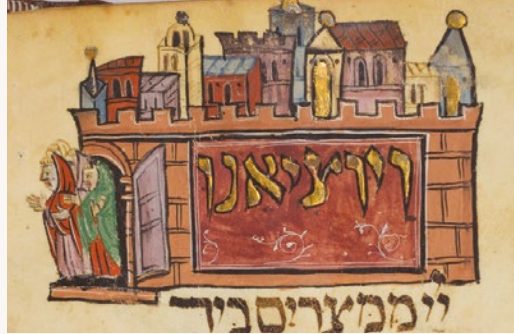 ויוציאנו
יי ממצרים ביד